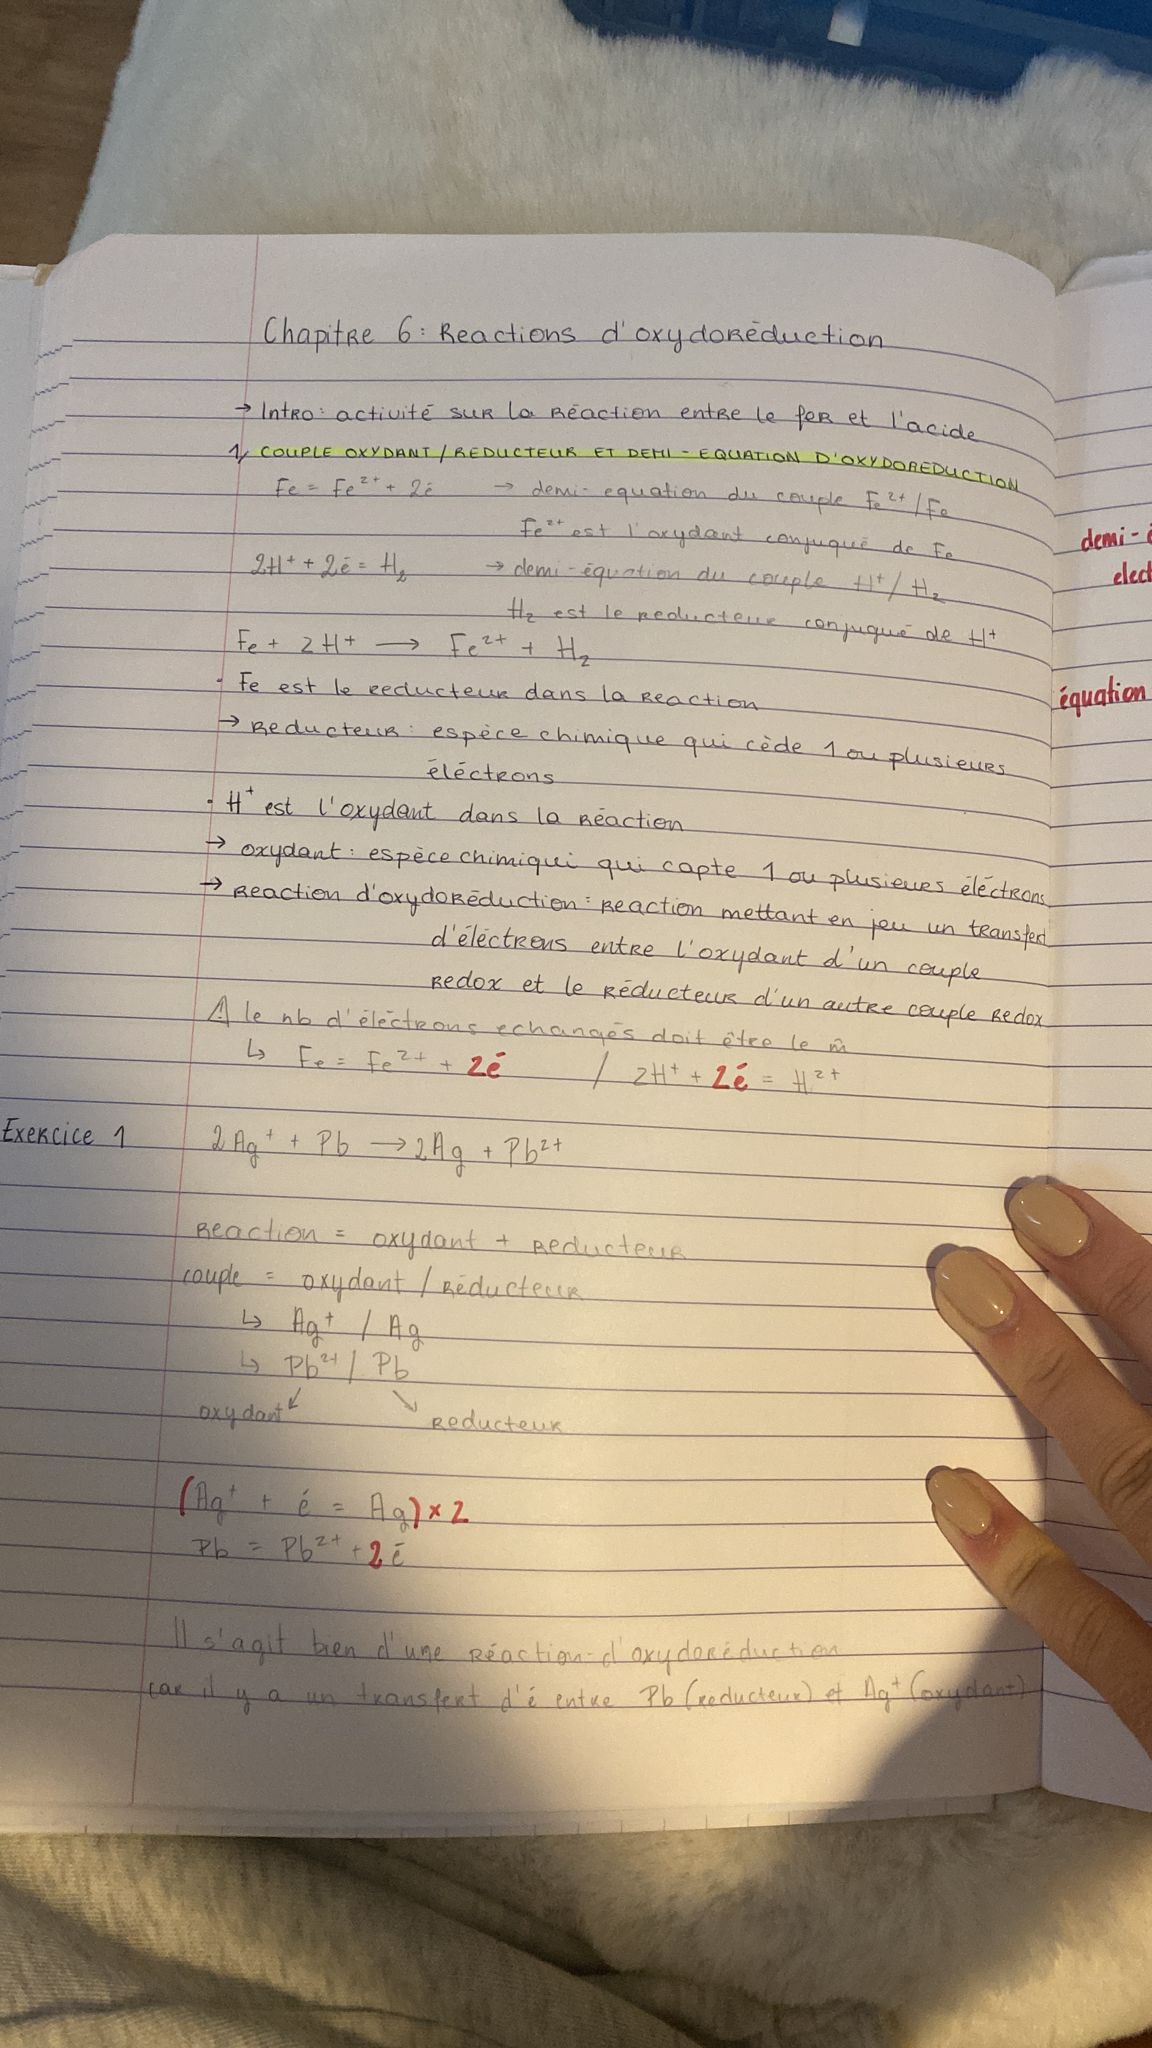 Chapitre 6: Reactions d'oxydoréduction
→ Intro: activité sur la réaction entre le fer et l'acide
1/ COUPLE OXYDANT / REDUCTEUR ET DEMI-EQUATION D'OXYDOREDUCTION
Fe = Fe²⁺ + 2é → demi-equation du couple Fe²⁺/Fe
Fe²⁺ est l'oxydant conjugué de Fe
2H⁺ + 2é = H₂ → demi-équation du couple H⁺/H₂
H₂ est le reducteur conjugué de H⁺
Fe + 2H⁺ → Fe²⁺ + H₂
· Fe est le reducteur dans la reaction
→ Reducteur: espèce chimique qui cède 1 ou plusieurs
éléctrons
· H⁺ est l'oxydant dans la réaction
→ oxydant: espèce chimiqui qui capte 1 ou plusieurs éléctrons
→ Reaction d'oxydoréduction: reaction mettant en jeu un transfert
d'éléctrons entre l'oxydant d'un couple
redox et le réducteur d'un autre couple redox
⚠ le nb d'éléctrons echangés doit être le m̂
↳ Fe = Fe²⁺ + 2é / 2H⁺ + 2é = H²⁺
Exercice 1 2Ag⁺ + Pb → 2Ag + Pb²⁺
Reaction = oxydant + reducteur
couple = oxydant / réducteur
↳ Ag⁺ / Ag
↳ Pb²⁺ / Pb
oxydant ↙ ↘ reducteur
(Ag⁺ + é = Ag) × 2
Pb = Pb²⁺ + 2é
Il s'agit bien d'une réaction d'oxydoréduction
car il y a un transfert d'é entre Pb (reducteur) et Ag⁺ (oxydant)
demi-é
elect
équation